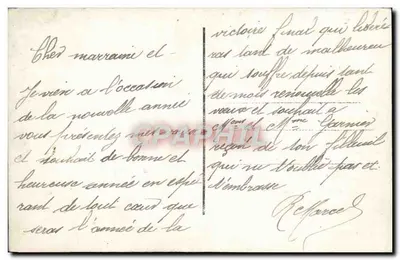 Cher marraine et
Je vien a l'occasion
de la nouvelle année
vous présentez mes
et souhait de bonne et
heureuse année en espé
rant de tout cœur que
seras l'année de la
victoire final qui libére
ras tand de malheureu
qui souffre depuis tant
de mois renouvelle les
veux et souhait a
Mme Garnier
reçoit de ton filleuil
qui ne t'oublie pas et
t'embrasse
R Marcel